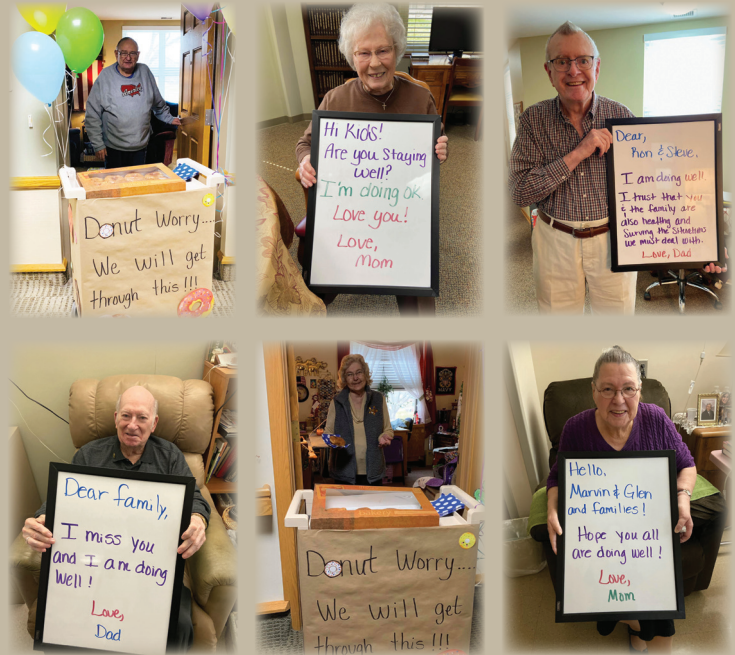 Donut Worry....
We will get
through this!!!
Hi Kids!
Are you staying
well?
I'm doing ok
Love you!
Love,
Mom
Dear,
Ron & Steve,
I am doing well.
I trust that you
& the family are
also healthy and
Surving the Situation
we must deal with.
Love, Dad
Dear family,
I miss you
and I am doing
well!
Love,
Dad
Donut Worry....
We will get
through this!!!
Hello,
Marvin & Glen
and families!
Hope you all
are doing well!
Love,
Mom